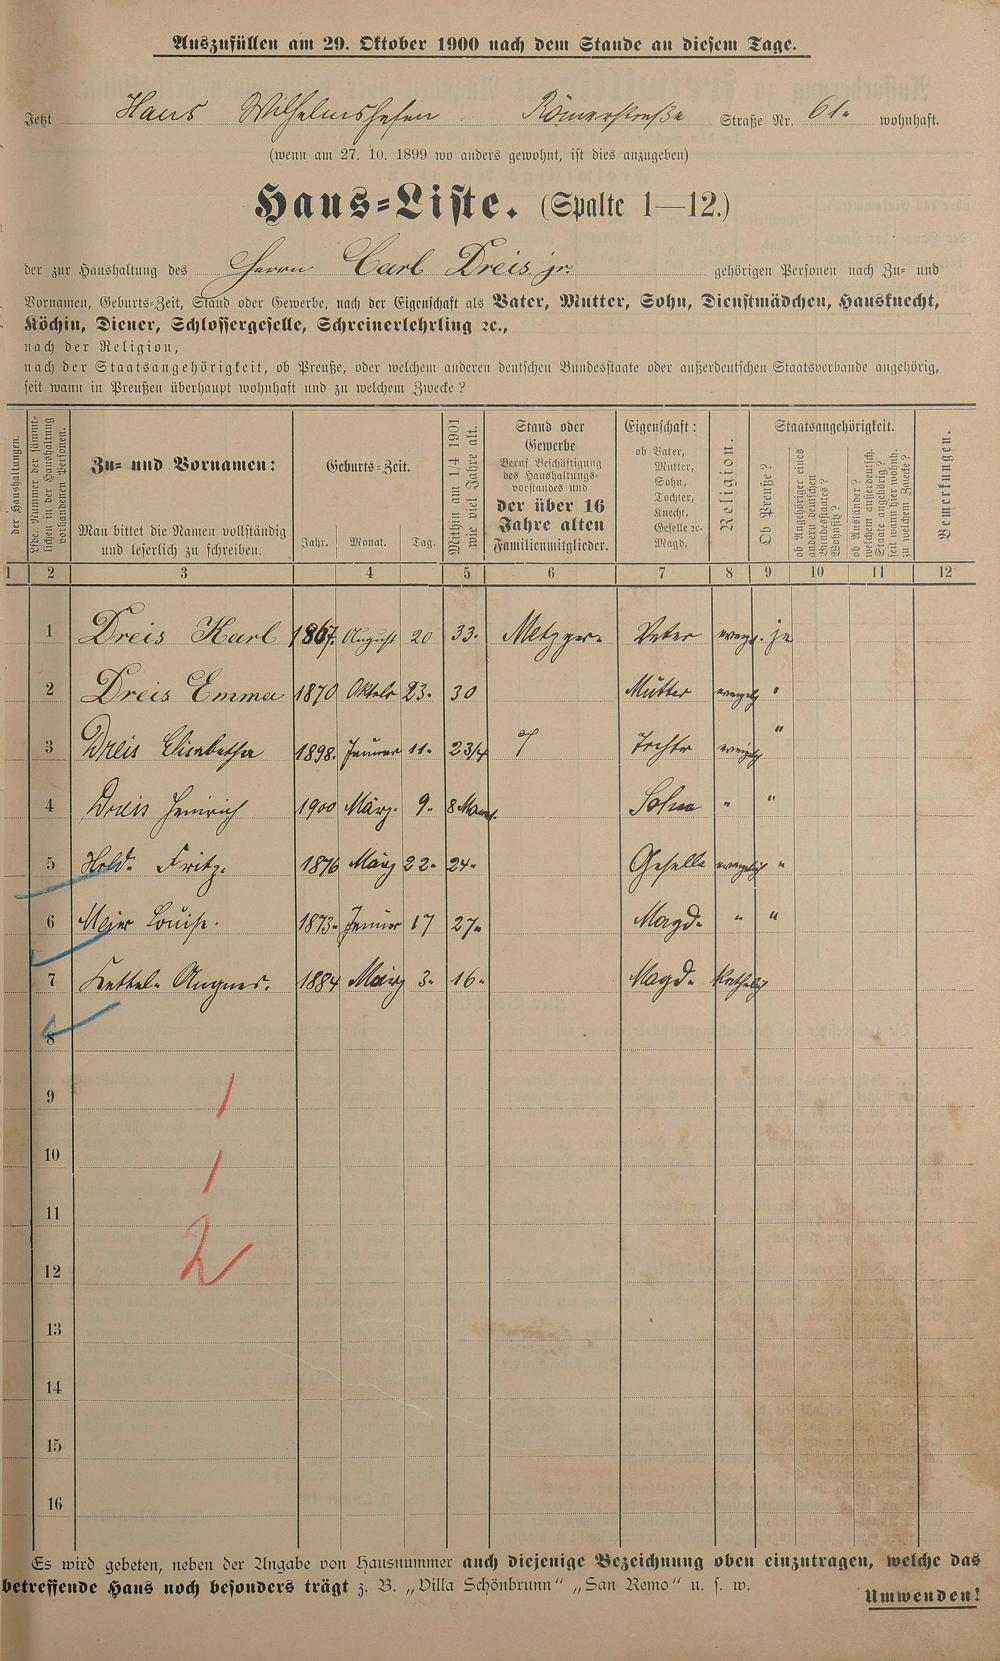 Auszufüllen am 29. Oktober 1900 nach dem Stande an diesem Tage.
Jetzt Haus Wilhelmshafen Römerstraße Straße Nr. 61. wohnhaft.
(wenn am 27. 10. 1899 wo anders gewohnt, ist dies anzugeben)
Haus-Liste. (Spalte 1—12.)
der zur Haushaltung des Herrn Carl Dreis jr. gehörigen Personen nach Zu- und
Vornamen, Geburts-Zeit, Stand oder Gewerbe, nach der Eigenschaft als Vater, Mutter, Sohn, Dienstmädchen, Hausknecht,
Köchin, Diener, Schlossergeselle, Schreinerlehrling ꝛc.,
nach der Religion,
nach der Staatsangehörigkeit, ob Preuße, oder welchem anderen deutschen Bundesstaate oder außerdeutschen Staatsverbande angehörig,
seit wann in Preußen überhaupt wohnhaft und zu welchem Zwecke?
der Haushaltungen.
Lfde. Nummer der sämmt-
lichen in der Haushaltung
vorhandenen Personen.
Zu- und Vornamen:
Man bittet die Namen vollständig
und leserlich zu schreiben.
Geburts-Zeit.
Jahr. Monat. Tag.
Mithin am 1/4 1901
wie viel Jahre alt.
Stand oder
Gewerbe
Beruf Beschäftigung
des Haushaltungs-
vorstandes und
der über 16
Jahre alten
Familienmitglieder.
Eigenschaft:
ob Vater,
Mutter,
Sohn,
Tochter,
Knecht,
Geselle ꝛc.
Magd.
Religion.
Staatsangehörigkeit.
Ob Preuße?
ob Angehöriger eines
andern deutschen
Bundesstaates?
Wohnsitz?
ob Ausländer?
welchem außerdeutsch.
Staate angehörig?
seit wann hier wohnh.
zu welchem Zwecke?
Bemerkungen.
1 2 3 4 5 6 7 8 9 10 11 12
1 Dreis Karl 1867. August 20 33. Metzger. Vater evangl. ja
2 Dreis Emma 1870 Oktober 23. 30 Mutter evangelig "
3 Dreis Elisabetha 1898. Januar 11. 2 3/4 Tochter evangelig "
4 Dreis Heinrich 1900 März. 9. 8 Monat. Sohn " "
5 Hold. Fritz. 1876 März 22. 24. Geselle evangelich "
6 Meier Louise. 1873. Januar 17 27. Magd. " "
7 1884 März 3. 16. Magd. katholig
8
9 1
10 1
11
12 2
13
14
15
16
Es wird gebeten, neben der Angabe von Hausnummer auch diejenige Bezeichnung oben einzutragen, welche das
betreffende Haus noch besonders trägt z. B. „Villa Schönbrunn“ „San Remo“ u. s. w.
Umwenden!